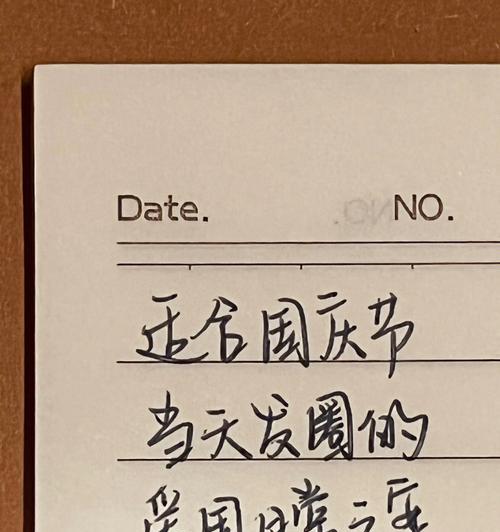 Date. NO.
适合国庆节
当天发圈的